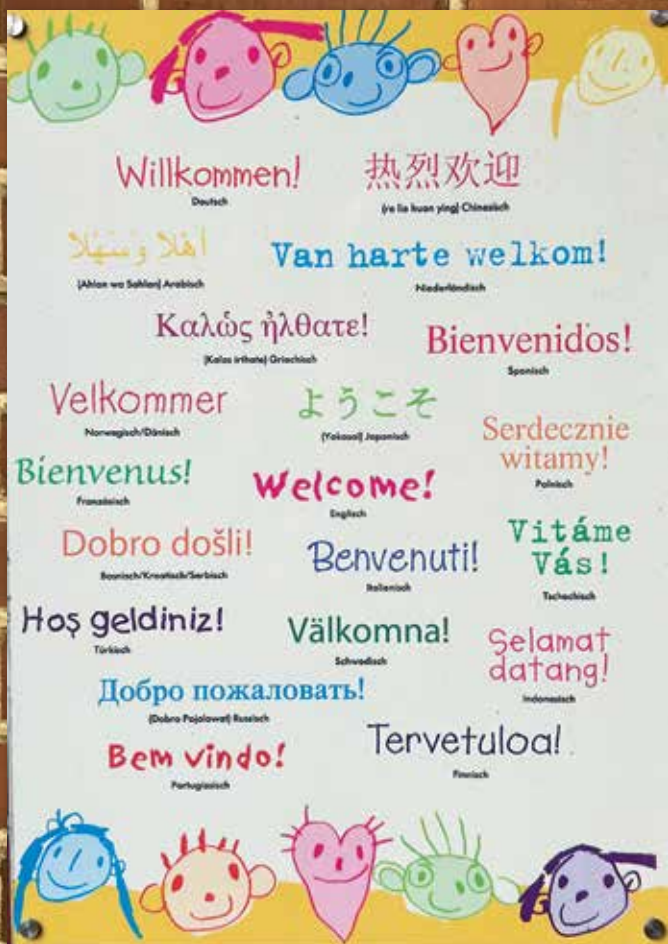 Willkommen!
Deutsch
热烈欢迎
(re lie huan ying) Chinesisch
أهلا وسهلا
(Ahlan wa Sahlan) Arabisch
Van harte welkom!
Niederländisch
Καλώς ἠλθατε!
(Kalos irthate) Griechisch
Bienvenidos!
Spanisch
Velkommer
Norwegisch/Dänisch
ようこそ
(Yokoso) Japanisch
Serdecznie
witamy!
Polnisch
Bienvenus!
Französisch
Welcome!
Englisch
Dobro došli!
Bosnisch/Kroatisch/Serbisch
Benvenuti!
Italienisch
Vitáme
Vás!
Tschechisch
Hoş geldiniz!
Türkisch
Välkomna!
Schwedisch
Selamat
datang!
Indonesisch
Добро пожаловать!
(Dobro Pojalowat) Russisch
Bem vindo!
Portugiesisch
Tervetuloa!
Finnisch